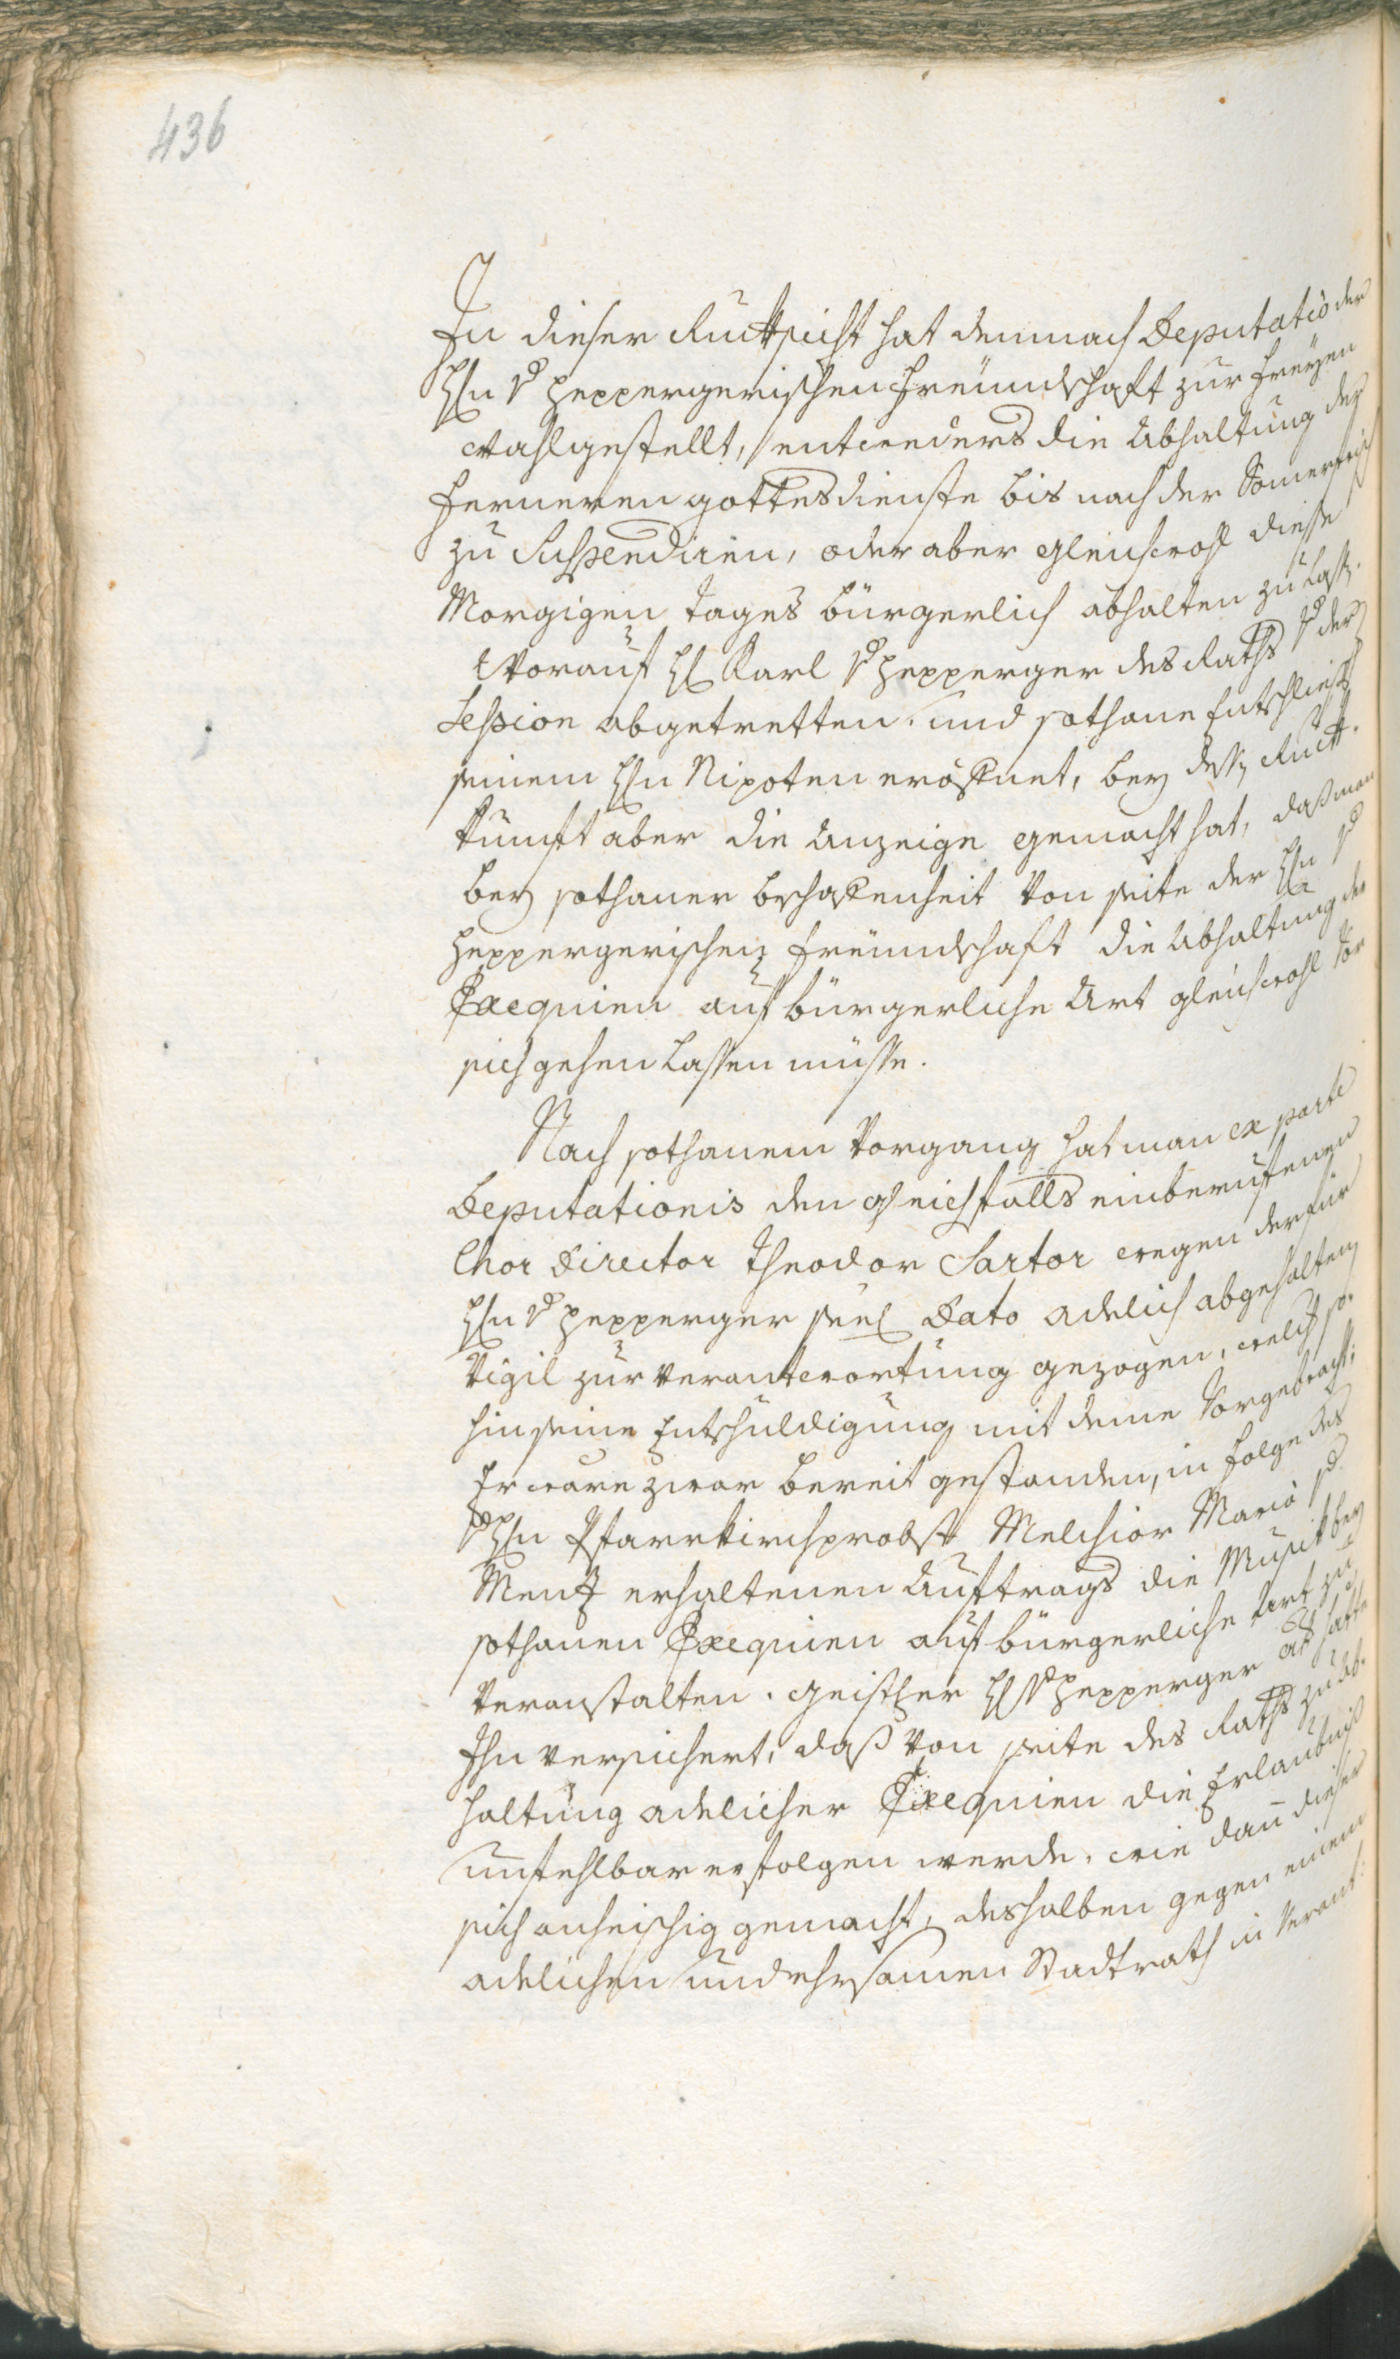 436
In dieser Ruckhsicht hat demnach Deputatio der
Hln v Heppergerischen Freundschaft zur freyen
Wahl gestellt, entweders die Abhaltung der
ferneren gottesdienste bis nach der
zu Suspendiren, oder aber gleichwohl diesse
Morgigen tages bürgerlich abhalten zu lassen.
Worauf Hl Karl v Hepperger des Raths v der
Session abgetretten. und sothane Entschliess
seinem Hln Nipoten eröffnet, bey dessen Ruckh-
kunft aber die Anzeige gemacht hat, daß man
bey sothaner bschaffenheit von seite der Hln v
Heppergerischen freundschaft die Abhaltung der
Exequien auf bürgerliche Art gleichwohl vor
sich gehen lassen müsse.
Nach sothanem Vorgang hat man ex parte
Deputationis den gleichfalls einberufenen
Chor Director Theodor Sartor wegen der für
Hln v Hepperger seel Dato adelich abgehaltenen
Vigil zur verantwortung gezogen, welcher so-
hin seine Entschuldigung mit deme Vorgebracht:
Er ware zwar bereit gestanden, in folge des
v Hln Pfarrkirchprobst Melchior Maria v
Menz erhaltenen Auftrags die Musik bey
sothanen Exequien auf bürgerliche Art zu
veranstalten. geistlicher Hl v Hepperger aber hatte
Ihn versichert, daß von seite des Raths zu Ab-
haltung adelicher Exequien die Erlaubniß
unfehlbar erfolgen werde, wie dann dieser
sich anheischig gemacht, deshalben gegen einem
adelichen und ehrsamen Stadtrath in Verant-